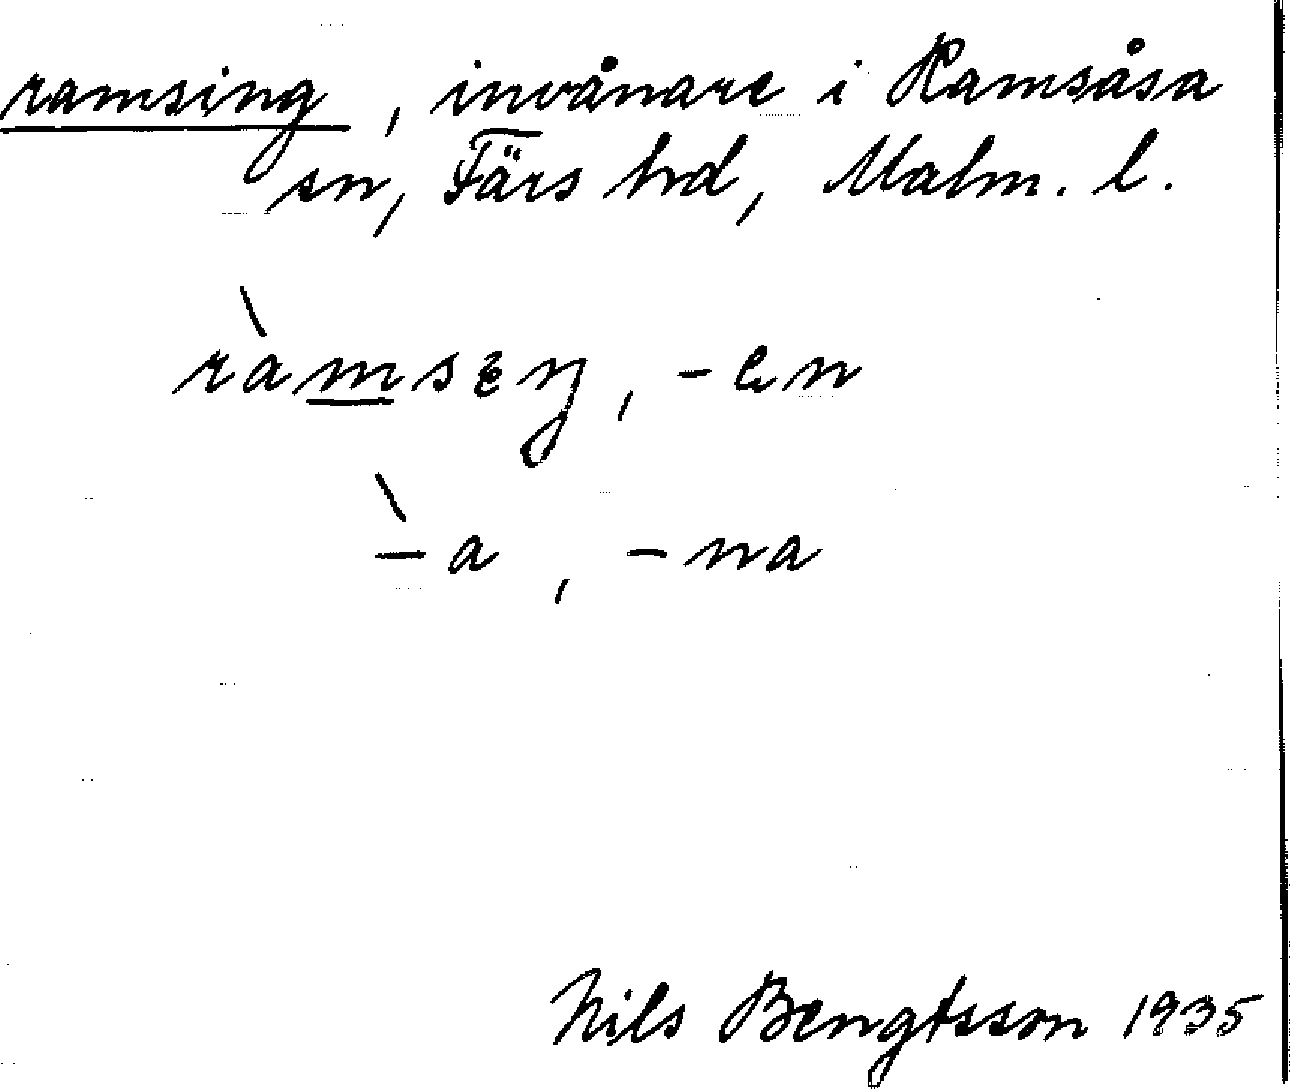 ramsing, invånare i Ramsåsa
sn, Färs hd, Malm. l.
ràmseŋ, -en
-a, -na
Nils Bengtsson 1935